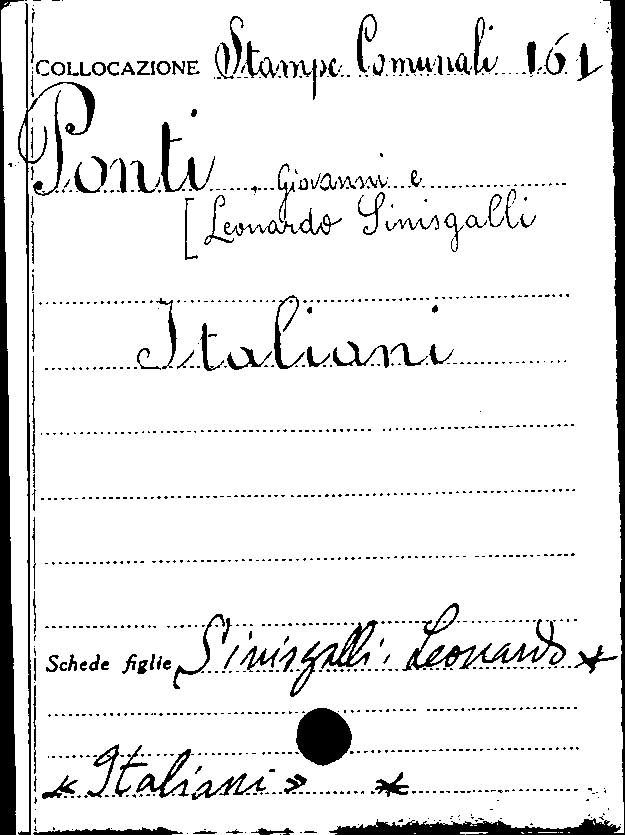 COLLOCAZIONE Stampe Comunali 161
Ponti, Giovanni e
[Leonardo Sinisgalli
Italiani
Schede figlie Sinisgalli, Leonardo *
« Italiani » *